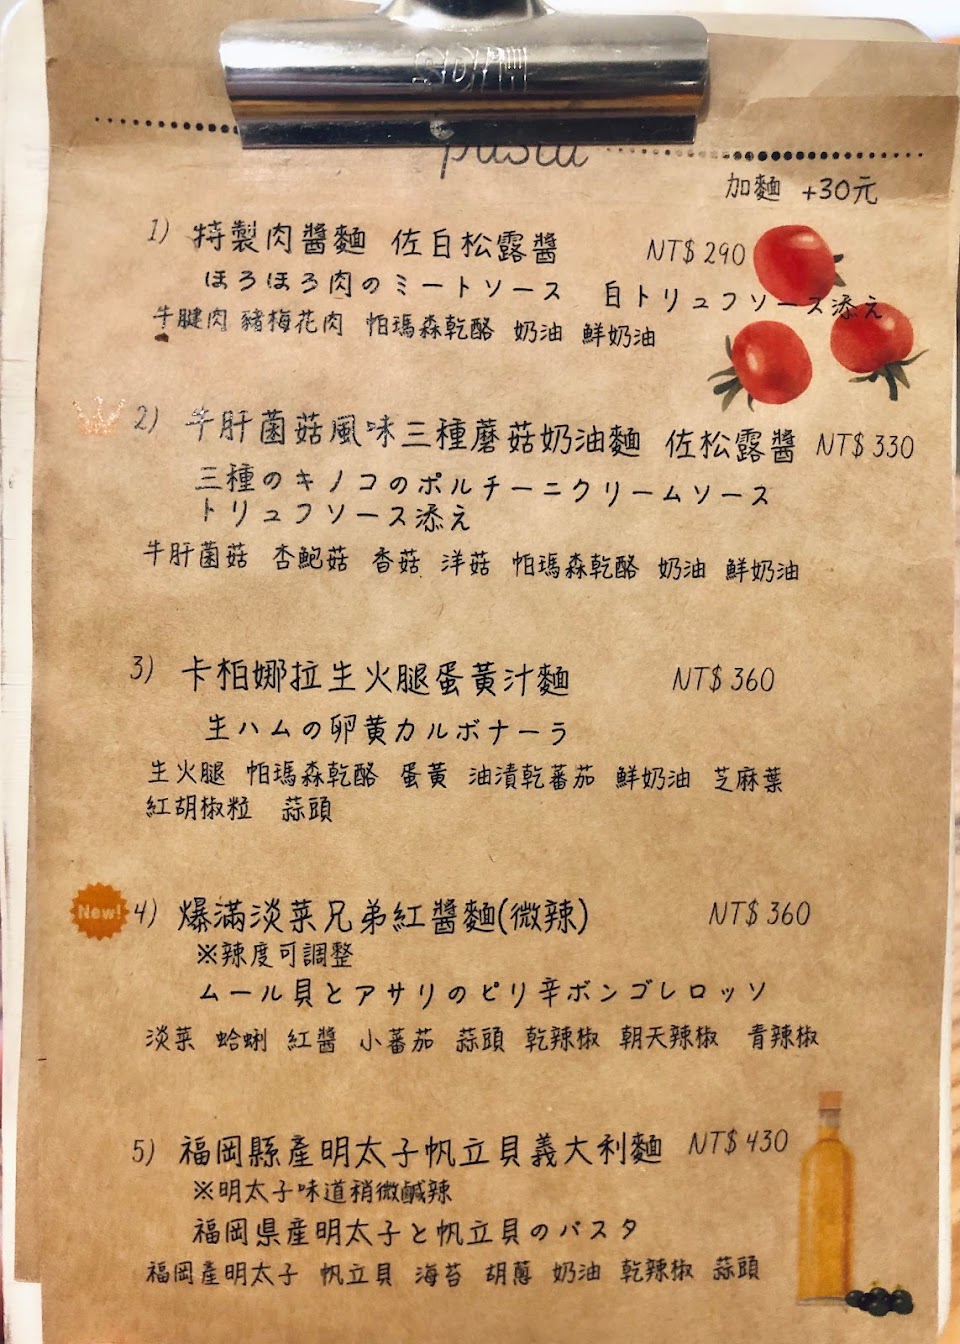 pasta
加麵 +30元
1) 特製肉醬麵 佐白松露醬 NT$290
ほろほろ肉のミートソース 白トリュフソース添え
牛腱肉 豬梅花肉 帕瑪森乾酪 奶油 鮮奶油
2) 牛肝菌菇風味三種蘑菇奶油麵 佐松露醬 NT$330
三種のキノコのポルチーニクリームソース
トリュフソース添え
牛肝菌菇 杏鮑菇 香菇 洋菇 帕瑪森乾酪 奶油 鮮奶油
3) 卡柏娜拉生火腿蛋黃汁麵 NT$360
生ハムの卵黄カルボナーラ
生火腿 帕瑪森乾酪 蛋黃 油漬乾蕃茄 鮮奶油 芝麻葉
紅胡椒粒 蒜頭
New! 4) 爆滿淡菜兄弟紅醬麵(微辣) NT$360
※辣度可調整
ムール貝とアサリのピリ辛ボンゴレロッソ
淡菜 蛤蜊 紅醬 小蕃茄 蒜頭 乾辣椒 朝天辣椒 青辣椒
5) 福岡縣產明太子帆立貝義大利麵 NT$430
※明太子味道稍微鹹辣
福岡県産明太子と帆立貝のパスタ
福岡產明太子 帆立貝 海苔 胡蔥 奶油 乾辣椒 蒜頭